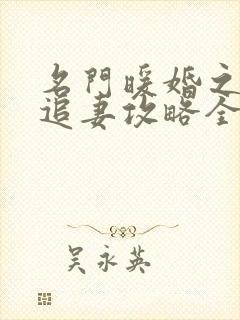 名門暖婚之
追妻攻略全
吴永英